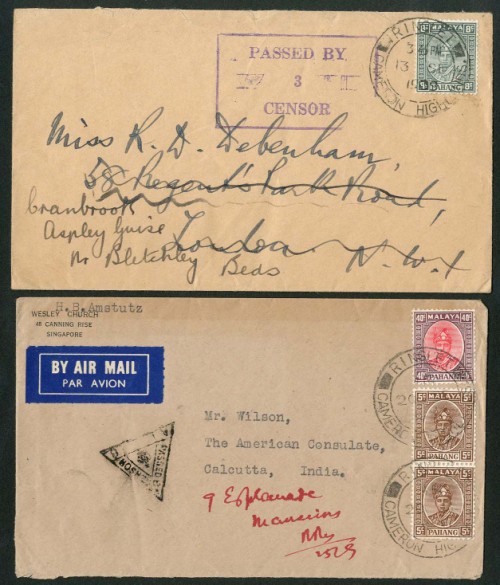 PASSED BY
3
CENSOR
RINGLET
CAMERON HIGH
8c MALAYA 8c
PAHANG
Miss R. D. Debenham,
58 Regent's Park Road,
London N.W.1
Cranbrook
Aspley Guise
Nr Bletchley Beds
H.B.Amstutz
WESLEY CHURCH
48 CANNING RISE
SINGAPORE
BY AIR MAIL
PAR AVION
40c MALAYA 40c
PAHANG
RINGLET
CAMERON
5c MALAYA 5c
PAHANG
5c MALAYA 5c
PAHANG
RINGLET
CAMERON HIGH
PASSED BY
CENSOR
Mr. Wilson,
The American Consulate,
Calcutta, India.
9 Esplanade
Mansions